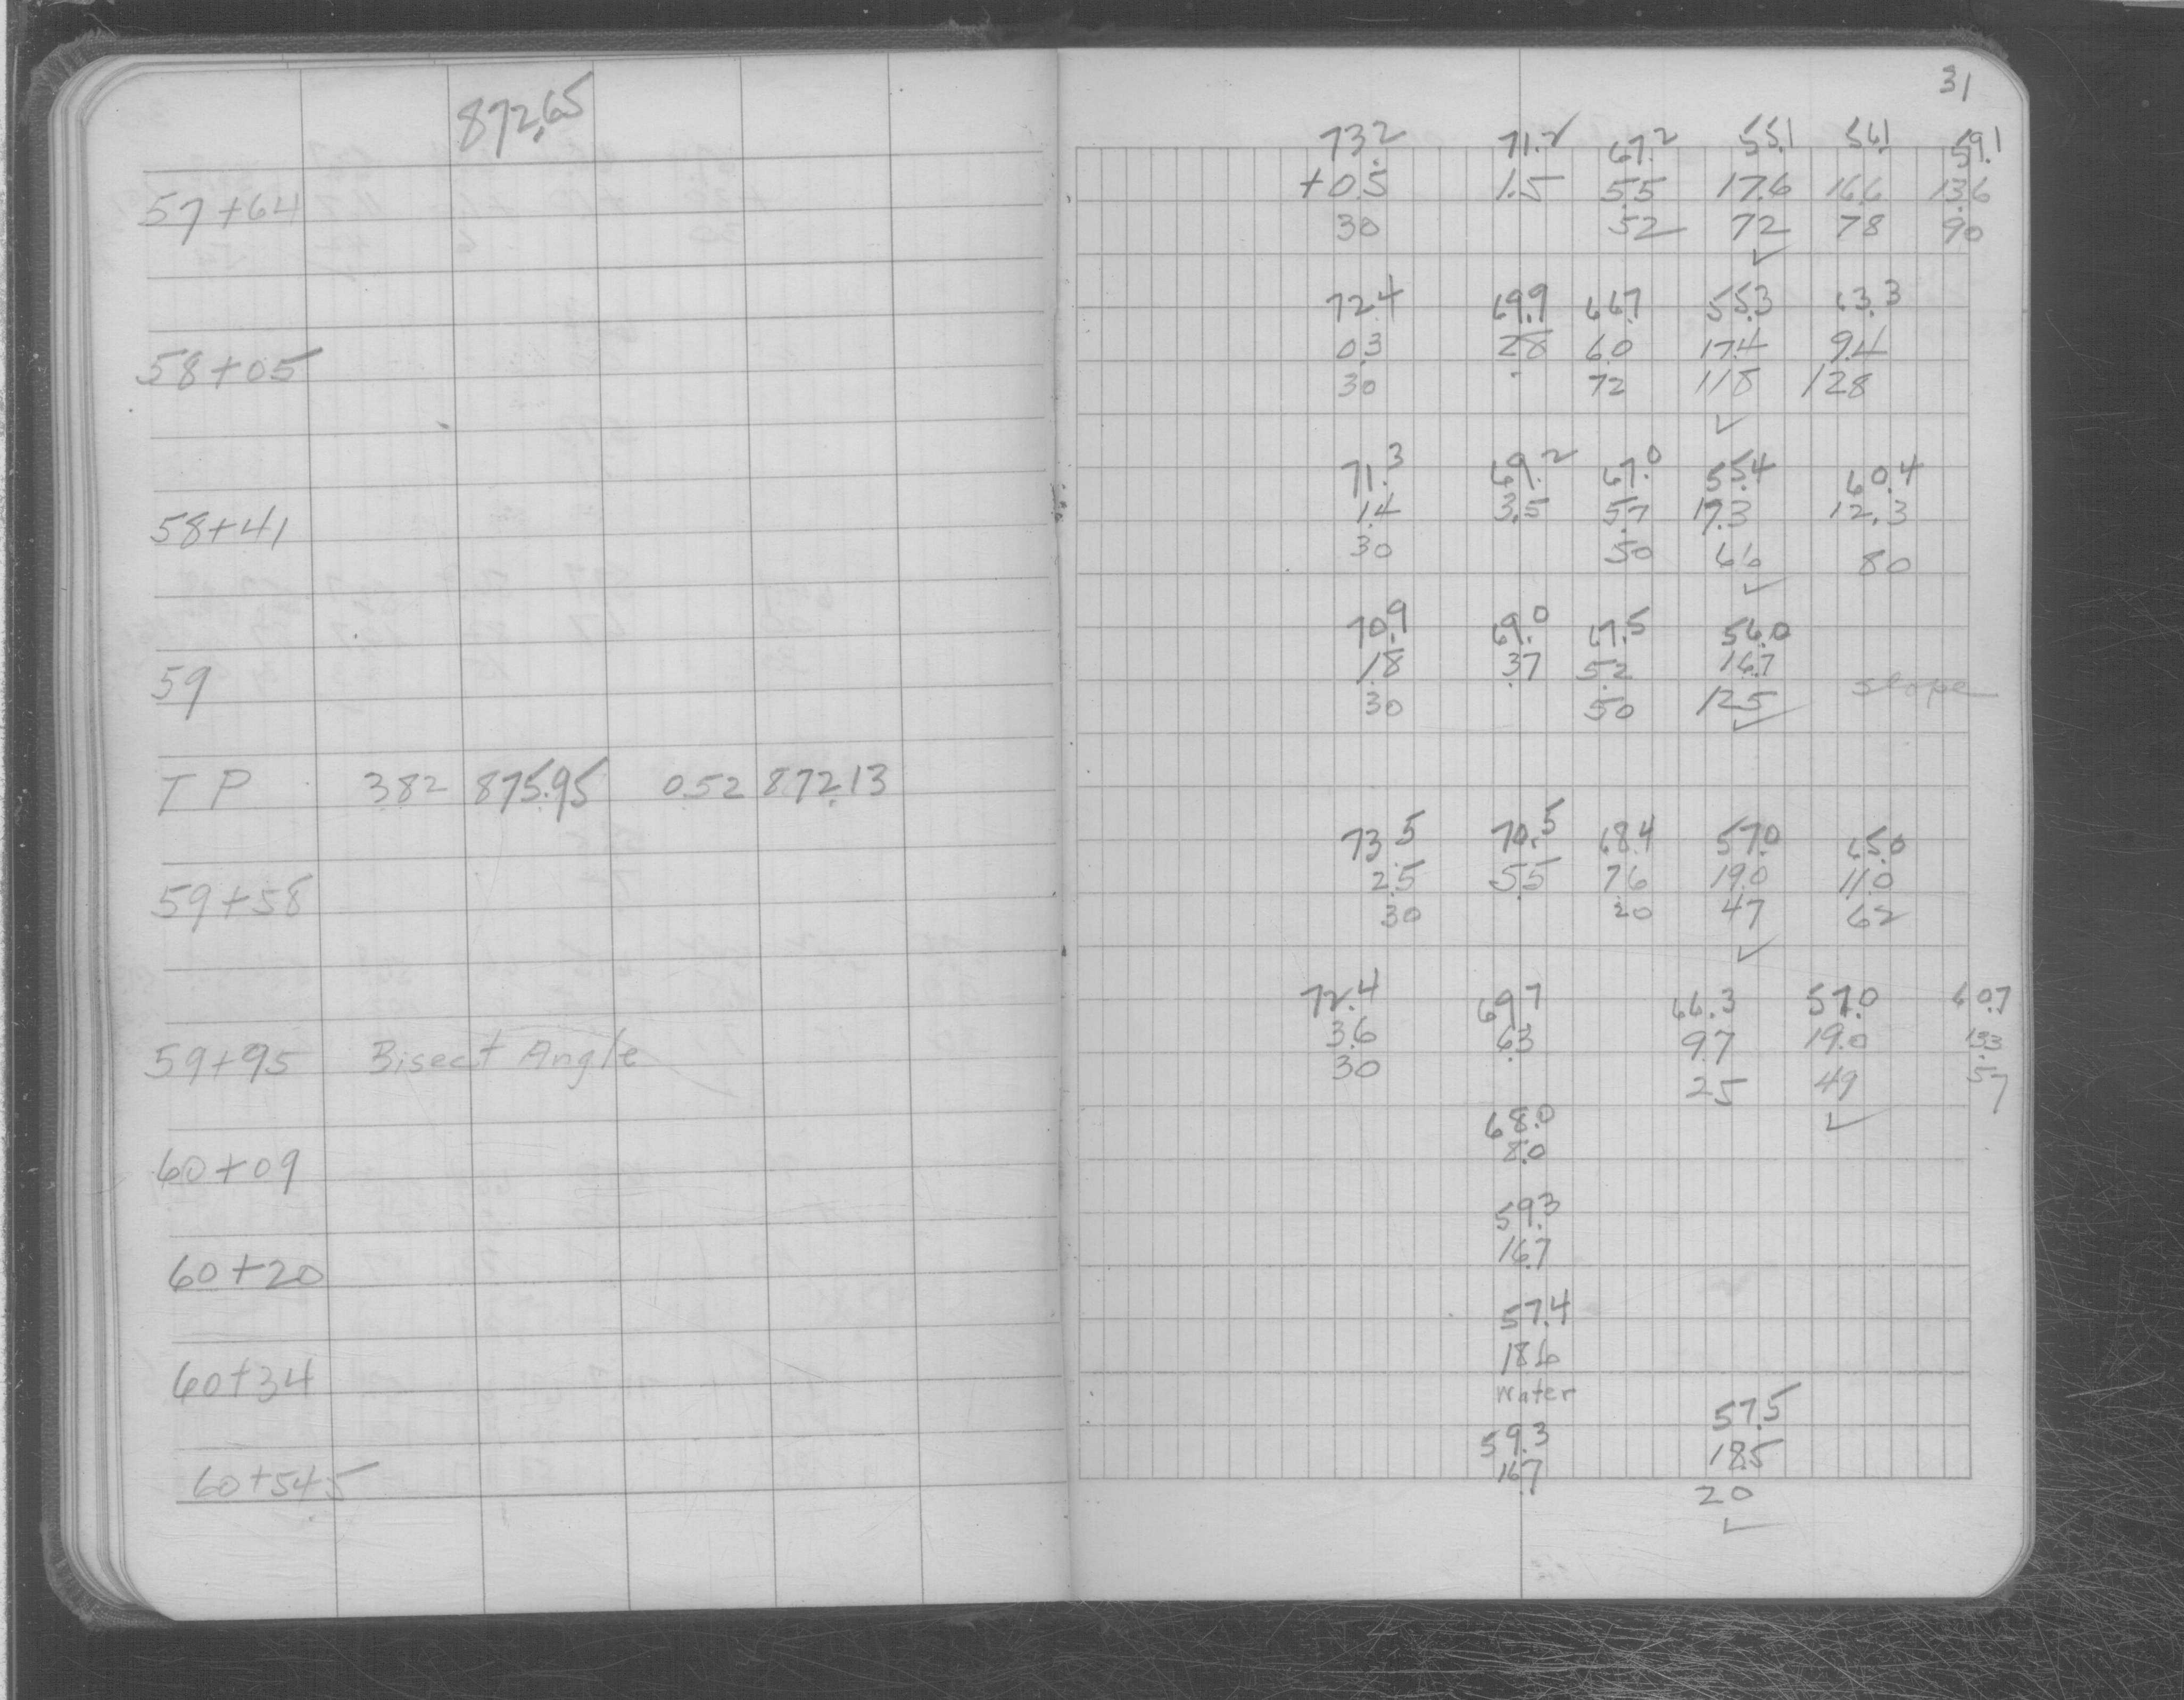 31
872.65
73.2 71.2 67.2 55.1 56.1 59.1
57+64 +0.5 1.5 5.5 17.6 16.6 13.6
30 52 72 78 90
✓
72.4 69.9 66.7 55.3 63.3
58+05 0.3 2.8 6.0 17.4 9.4
30 72 118 128
✓
71.3 69.2 67.0 55.4 60.4
58+41 1.4 3.5 5.7 17.3 12.3
30 50 66 80
✓
70.9 69.0 67.5 56.0
59 1.8 3.7 5.2 16.7 slope
30 50 125
✓
T P 3.82 875.95 0.52 872.13
73.5 70.5 68.4 57.0 65.0
59+58 2.5 5.5 7.6 19.0 11.0
30 20 47 62
✓
72.4 69.7 66.3 57.0 60.7
59+95 Bisect Angle 3.6 6.3 9.7 19.0 13.3
30 25 49 57
✓
68.0
60+09 8.0
59.3
60+20 16.7
57.4
60+34 18.6
Water
59.3 57.5
60+54.5 16.7 18.5
20
✓